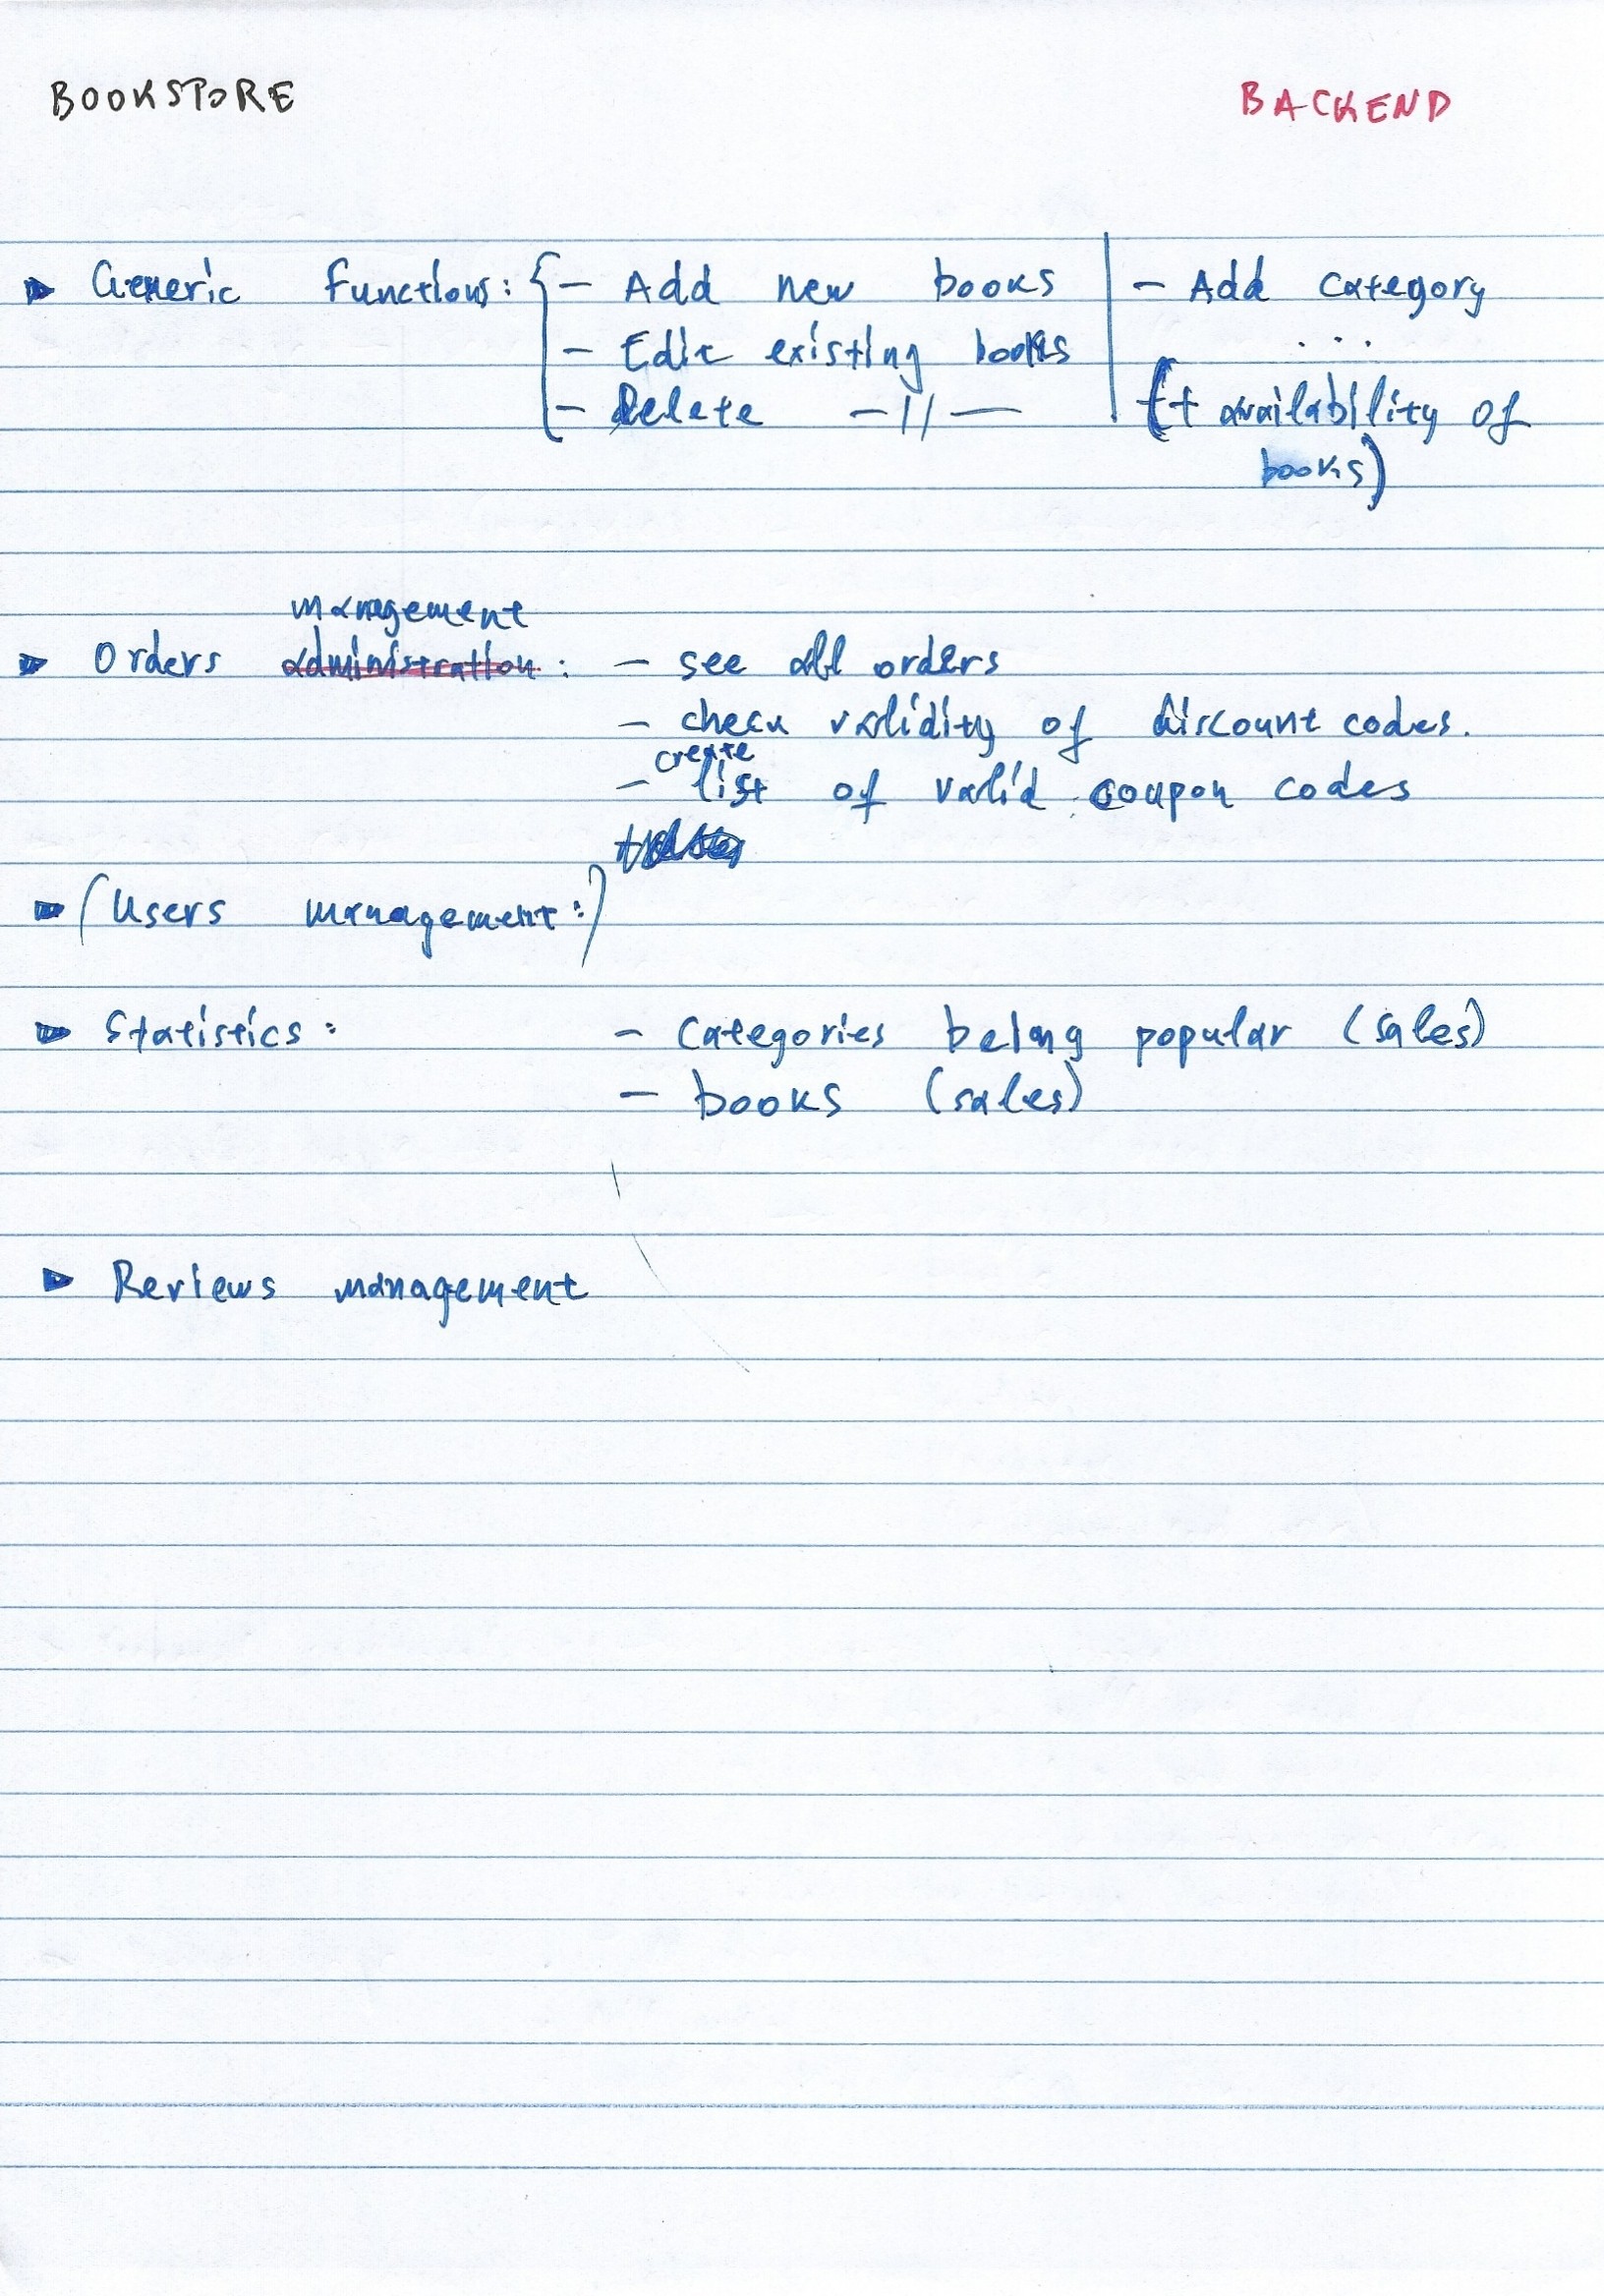 BOOKSTORE BACKEND
Generic Functions: { – Add new books | – Add category
– Edit existing books ...
– Delete –//— (+ availability of
books)
management
Orders administration: – see all orders
– check validity of discount codes.
create
– list of valid coupon codes
(Users management:)
Statistics: – Categories being popular (sales)
– books (sales)
Reviews management